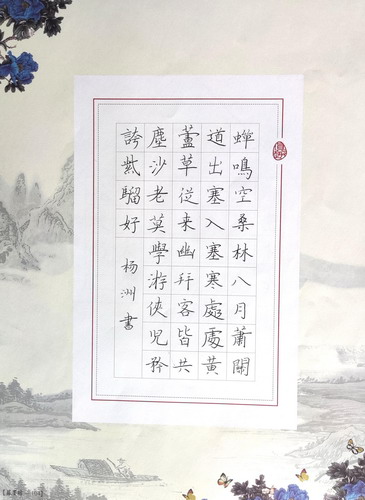 蟬鳴空桑林八月蕭關
道出塞入塞寒處處黃
蘆草從来幽并客皆共
塵沙老莫學游俠兒矜
誇紫騮好
杨洲書